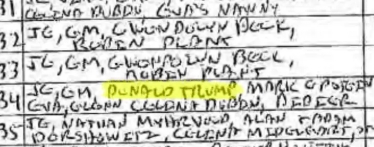 31
CELINA DUBIN EVA'S NANNY
32 JE, GM, GWENDOLYN BECK,
RUBIN PLANT
33 JE, GM, GWENDOLYN BECK,
RUBIN PLANT
34 JE, GM, DONALD TRUMP MARK EPSTEIN
EVA, GLENN CELINA DUBIN, DIDIER
35 JE, NATHAN MYHRVOLD, ALAN
DERSHOWITZ, CELINA MIDELFART,